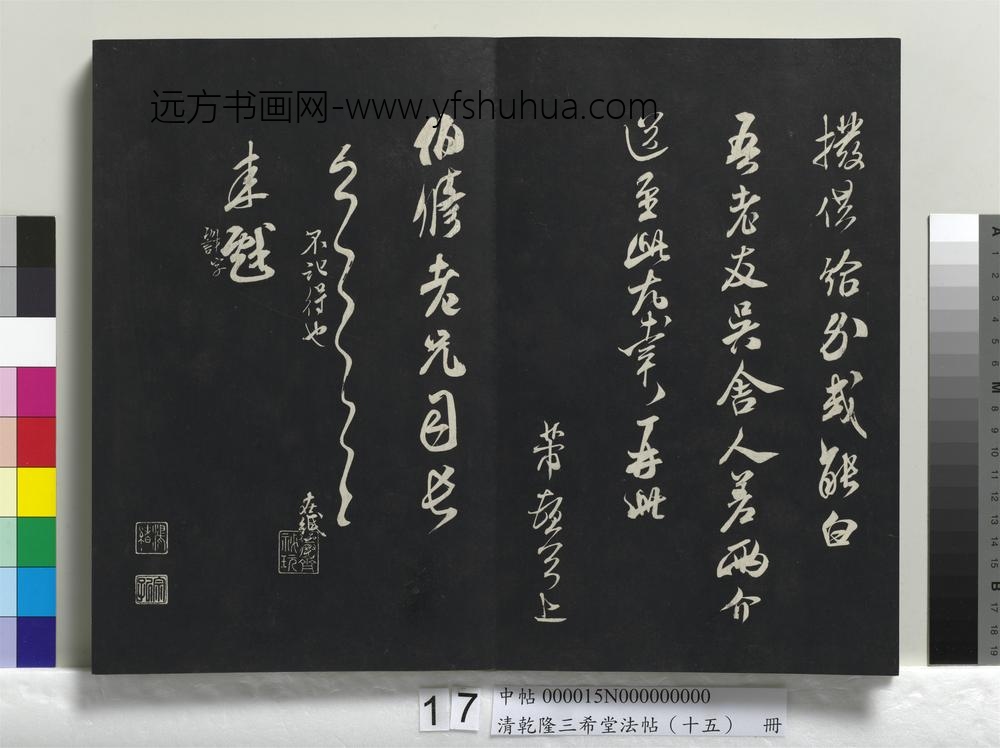 远方书画网-www.yfshuhua.com
撥供給或能白
吾老友吳舍人差兩介
送至此尤幸再此
芾頓首上
伯修老兄目長
不記得也
来戲
中帖 000015N000000000
17
清乾隆三希堂法帖（十五） 冊
A
1
2
3
4
5
M
8
9
10
11
12
13
14
15
B
17
18
19